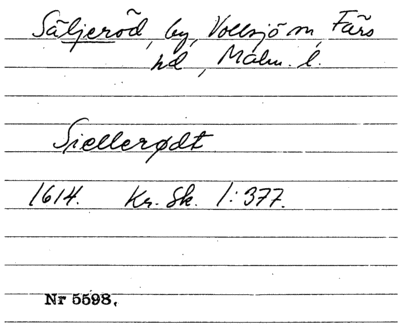 Säljeröd, by, Vollsjö sn, Färs
hd, Malm. l.
Siellerødt
1614. Kr. Sk. 1:377.
Nr 5598.